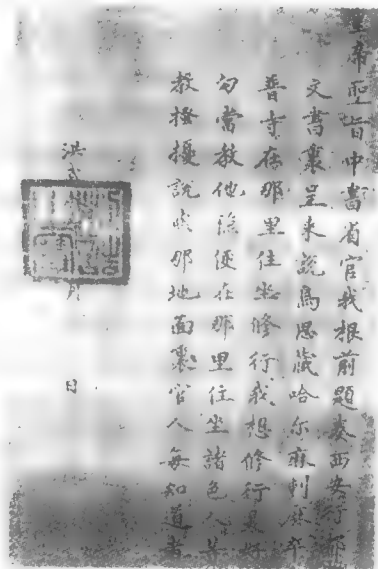 皇帝聖旨中書省官我根前題奏西安行都
文書裏呈來說烏思藏哈尔麻剌麻卒
普寺在那里住坐修行我想修行是好
勾當教他穩便在那里住坐諸色人等
教搔擾說與那地面裏官人每知道者
洪武 月 日